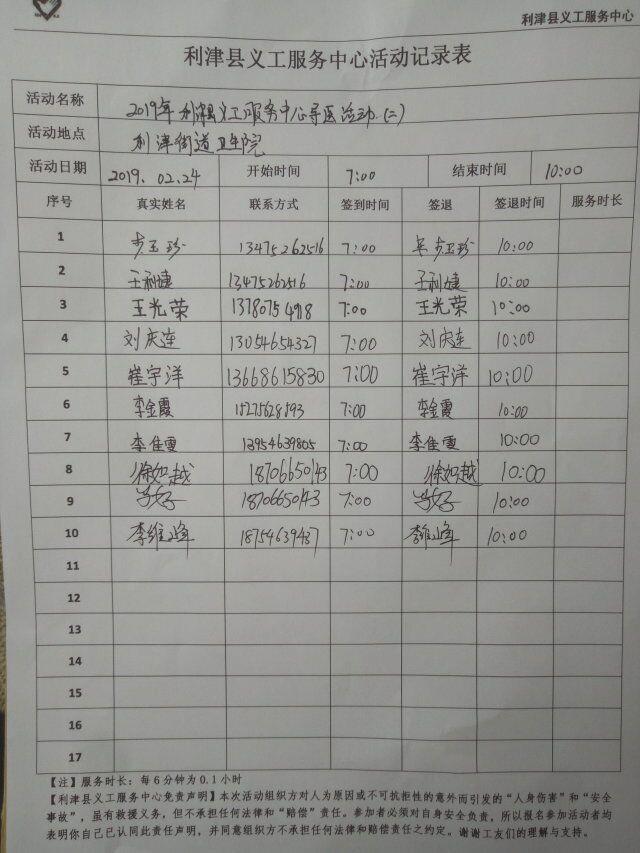 利津县义工服务中心
利津县义工服务中心活动记录表
活动名称 2019年利津县义工服务中心导医活动(二)
活动地点 利津街道卫生院
活动日期 2019.02.24 开始时间 7:00 结束时间 10:00
序号 真实姓名 联系方式 签到时间 签退 签退时间 服务时长
1 步玉珍 13475262516 7:00 步玉珍 10:00
2 王利婕 13475262516 7:00 王利婕 10:00
3 王光荣 13780754918 7:00 王光荣 10:00
4 刘庆连 13054654327 7:00 刘庆连 10:00
5 崔宇洋 13668615830 7:00 崔宇洋 10:00
6 李金霞 15275628593 7:00 李金霞 10:00
7 李佳雯 13954639805 7:00 李佳雯 10:00
8 徐如越 18706650143 7:00 徐如越 10:00
9 18706650143 7:00 10:00
10 李维峰 18754639487 7:00 李维峰 10:00
11
12
13
14
15
16
17
【注】服务时长：每6分钟为0.1小时
【利津县义工服务中心免责声明】本次活动组织方对人为原因或不可抗拒性的意外而引发的“人身伤害”和“安全
事故”，虽有救援义务，但不承担任何法律和“赔偿”责任。参加者必须对自身安全负责，所以报名参加活动者均
表明你自己已认同此责任声明，并同意组织方不承担任何法律和赔偿责任之约定。谢谢工友们的理解与支持。